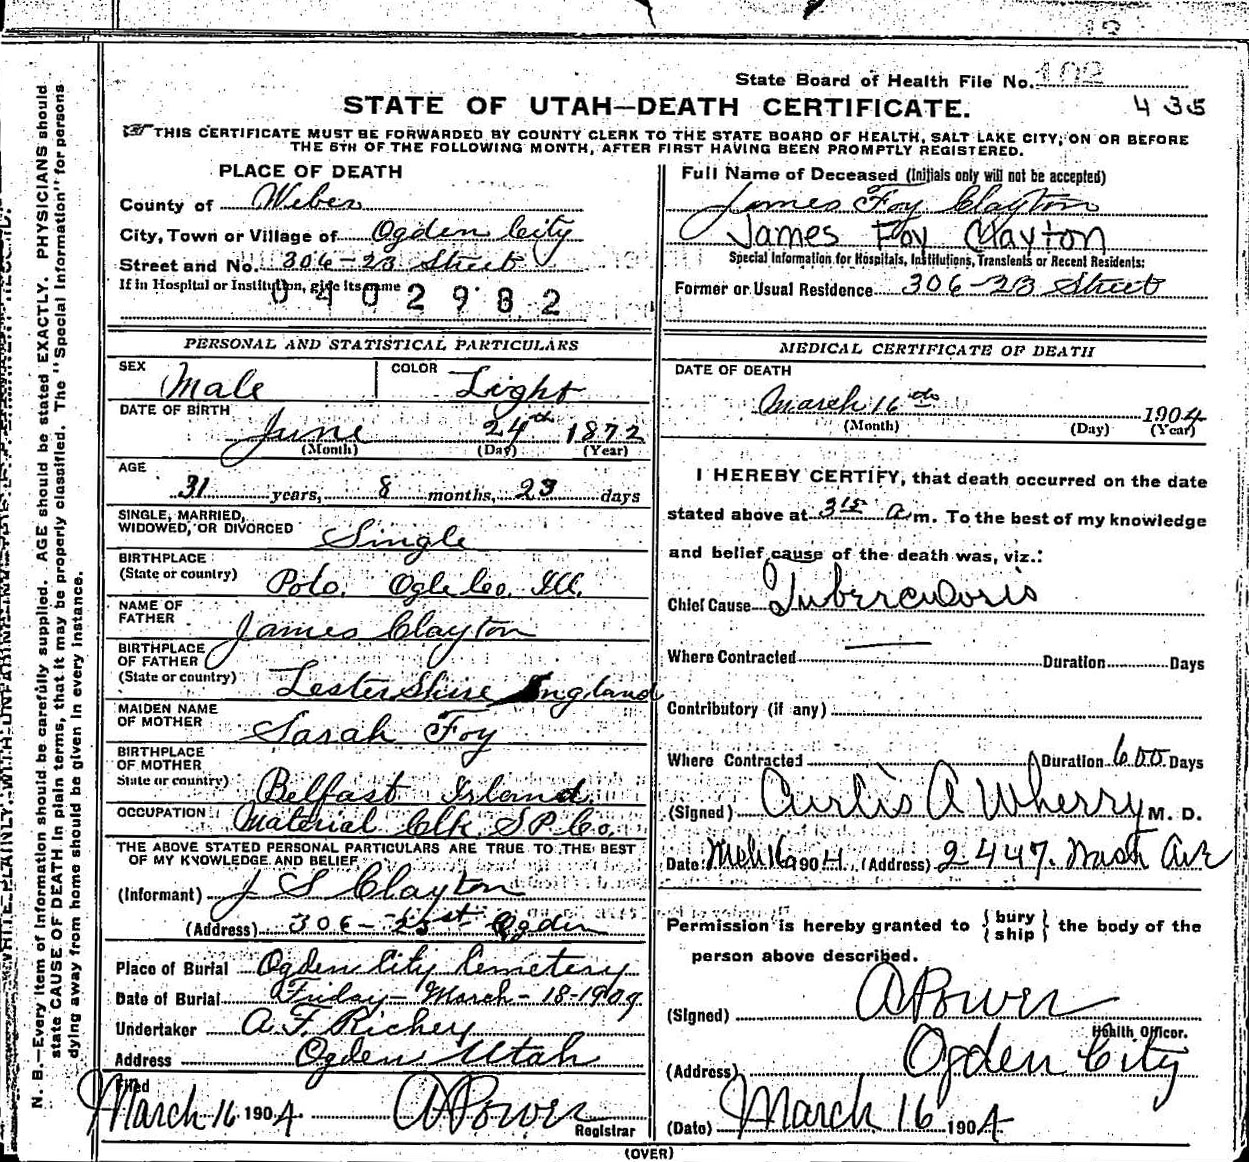 12
State Board of Health File No. 102
435
STATE OF UTAH—DEATH CERTIFICATE.
THIS CERTIFICATE MUST BE FORWARDED BY COUNTY CLERK TO THE STATE BOARD OF HEALTH, SALT LAKE CITY, ON OR BEFORE
THE 5TH OF THE FOLLOWING MONTH, AFTER FIRST HAVING BEEN PROMPTLY REGISTERED.
PLACE OF DEATH
County of Weber
City, Town or Village of Ogden City
Street and No. 306-23 Street
If in Hospital or Institution, give its name
0402982
Full Name of Deceased (Initials only will not be accepted)
James Foy Clayton
James Foy Clayton
Special Information for Hospitals, Institutions, Transients or Recent Residents:
Former or Usual Residence 306-23 Street
PERSONAL AND STATISTICAL PARTICULARS
SEX Male COLOR Light
DATE OF BIRTH
June 24th 1872
(Month) (Day) (Year)
AGE
31 years, 8 months, 23 days
SINGLE, MARRIED,
WIDOWED, OR DIVORCED Single
BIRTHPLACE
(State or country) Polo. Ogle Co. Ill.
NAME OF
FATHER James Clayton
BIRTHPLACE
OF FATHER
(State or country) Lester Shire England
MAIDEN NAME
OF MOTHER Sarah Foy
BIRTHPLACE
OF MOTHER
State or country) Belfast Irland
OCCUPATION Material Clk. S P Co.
THE ABOVE STATED PERSONAL PARTICULARS ARE TRUE TO THE BEST
OF MY KNOWLEDGE AND BELIEF
(Informant) J S Clayton
(Address) 306- 23st Ogden
Place of Burial Ogden City Cemetery
Date of Burial Friday- March-18-1904
Undertaker A. F. Richey
Address Ogden Utah
Filed
March 16 1904. A Power
Registrar
MEDICAL CERTIFICATE OF DEATH
DATE OF DEATH
March 16th 1904
(Month) (Day) (Year)
I HEREBY CERTIFY, that death occurred on the date
stated above at 315 a m. To the best of my knowledge
and belief cause of the death was, viz.:
Chief Cause Tuberculosis
Where Contracted — Duration Days
Contributory (if any)
Where Contracted Duration 600 Days
(Signed) Curtis A Wherry M. D.
Date Mch 16 1904 (Address) 2447. Wash Ave
Permission is hereby granted to { bury ship } the body of the
person above described.
(Signed) A Power
Health Officer.
(Address) Ogden City
(Date) March 16 1904
(OVER)
N. B.—Every item of information should be carefully supplied. AGE should be stated EXACTLY. PHYSICIANS should
state CAUSE OF DEATH in plain terms, that it may be properly classified. The "Special Information" for persons
dying away from home should be given in every instance.